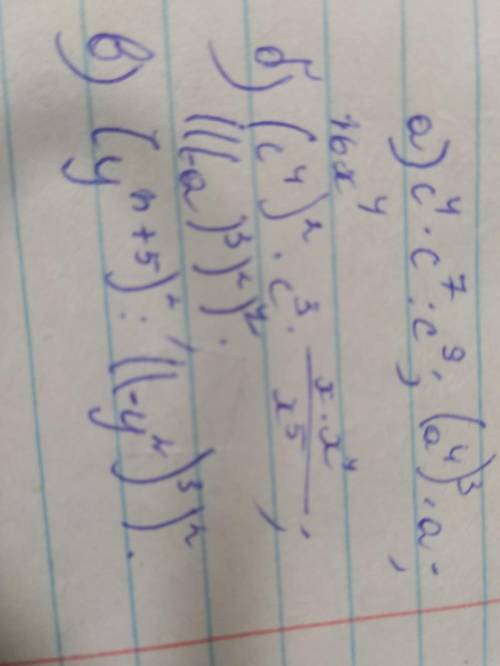 а) c⁴ · c⁷ : c⁹; (a⁴)³ · a;
16x⁴
б) (c⁴)² · c³ · \frac{x · x⁴}{x⁵};
(((-a)³)²)².
в) (yⁿ⁺⁵)² : ((-y²)³)².